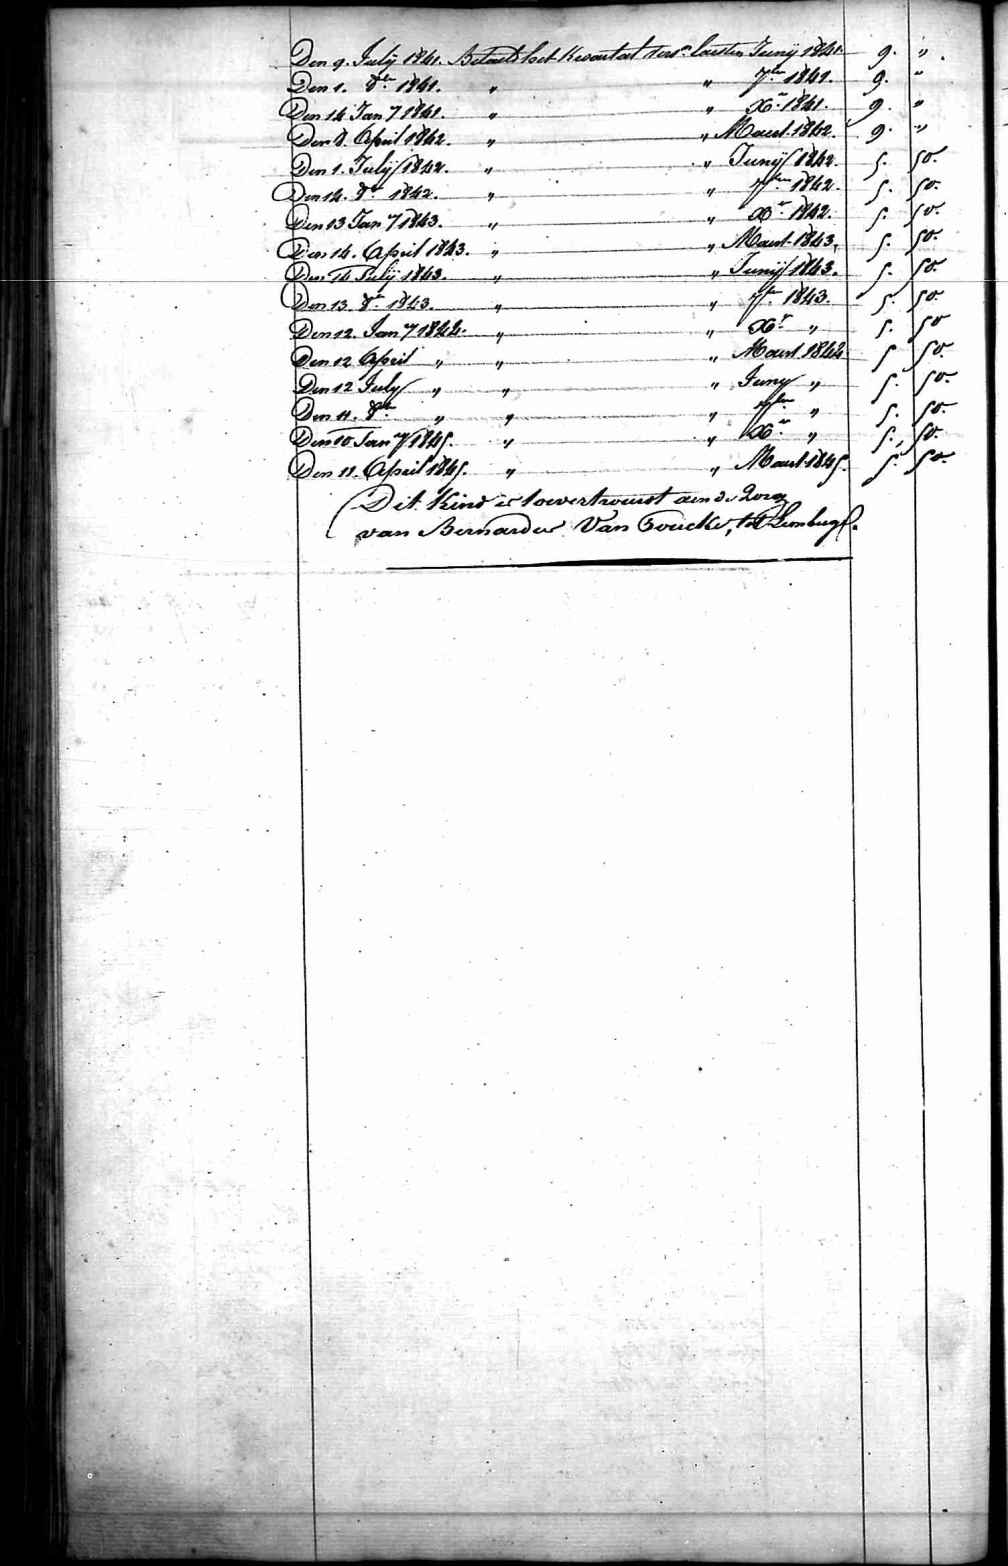 Den 9. July 1841. Betaald het kwartaal verv.n laesten Juny 1841. 9. "
Den 1. 8br 1841. " " 7br 1841. 9. "
Den 14 Jan.y 1841. " " Xr 1841. 9. "
Den 8. April 1842. " " Maert 1842. 9. "
Den 1. July 1842. " " Juny 1842. 5. 50.
Den 14. 8br 1842. " " 7bre 1842. 5. 50.
Den 13 Jan.y 1843. " " Xr 1842. 5. 50.
Den 14. April 1843. " " Maert 1843. 5. 50.
Den 14 July 1843. " " Juny 1843. 5. 50.
Den 13. 8br 1843. " " 7br 1843. 5. 50.
Den 12. Jan.y 1844. " " Xr " 5. 50
Den 12 April " " " Maert 1844 5 50.
Den 12 July " " " Juny " 5. 50.
Den 11. 8br " " " 7bre " 5. 50.
Den 10 Jan.y 1845. " " Xr " 5. 50.
Den 11. April 1845. " " Maert 1845. 5. 50.
Dit kind is toevertrouwt aen de zorg
van Bernardus Van